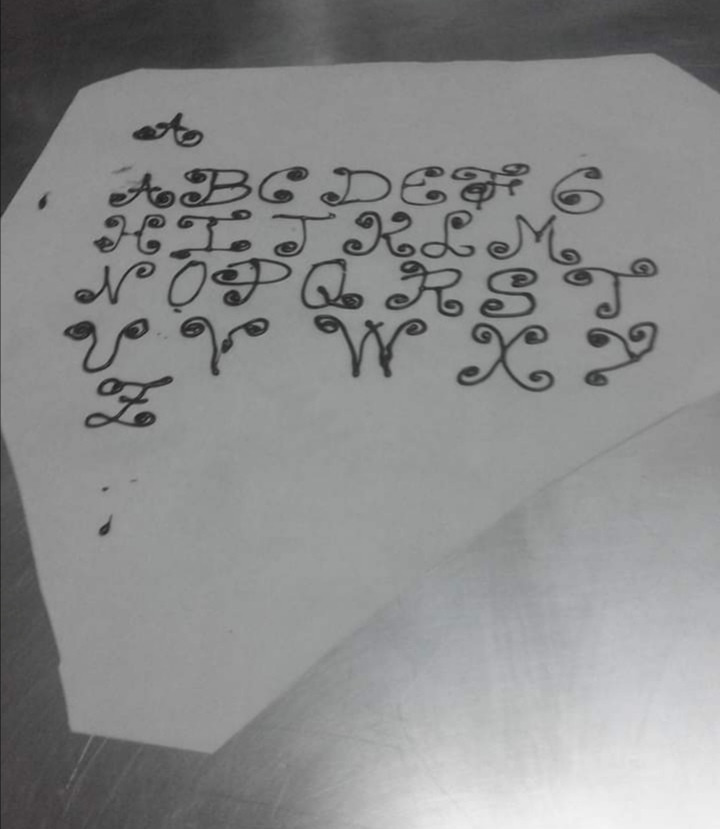 A
A B C D E F G
H I J K L M
N O P Q R S T
U V W X Y
Z